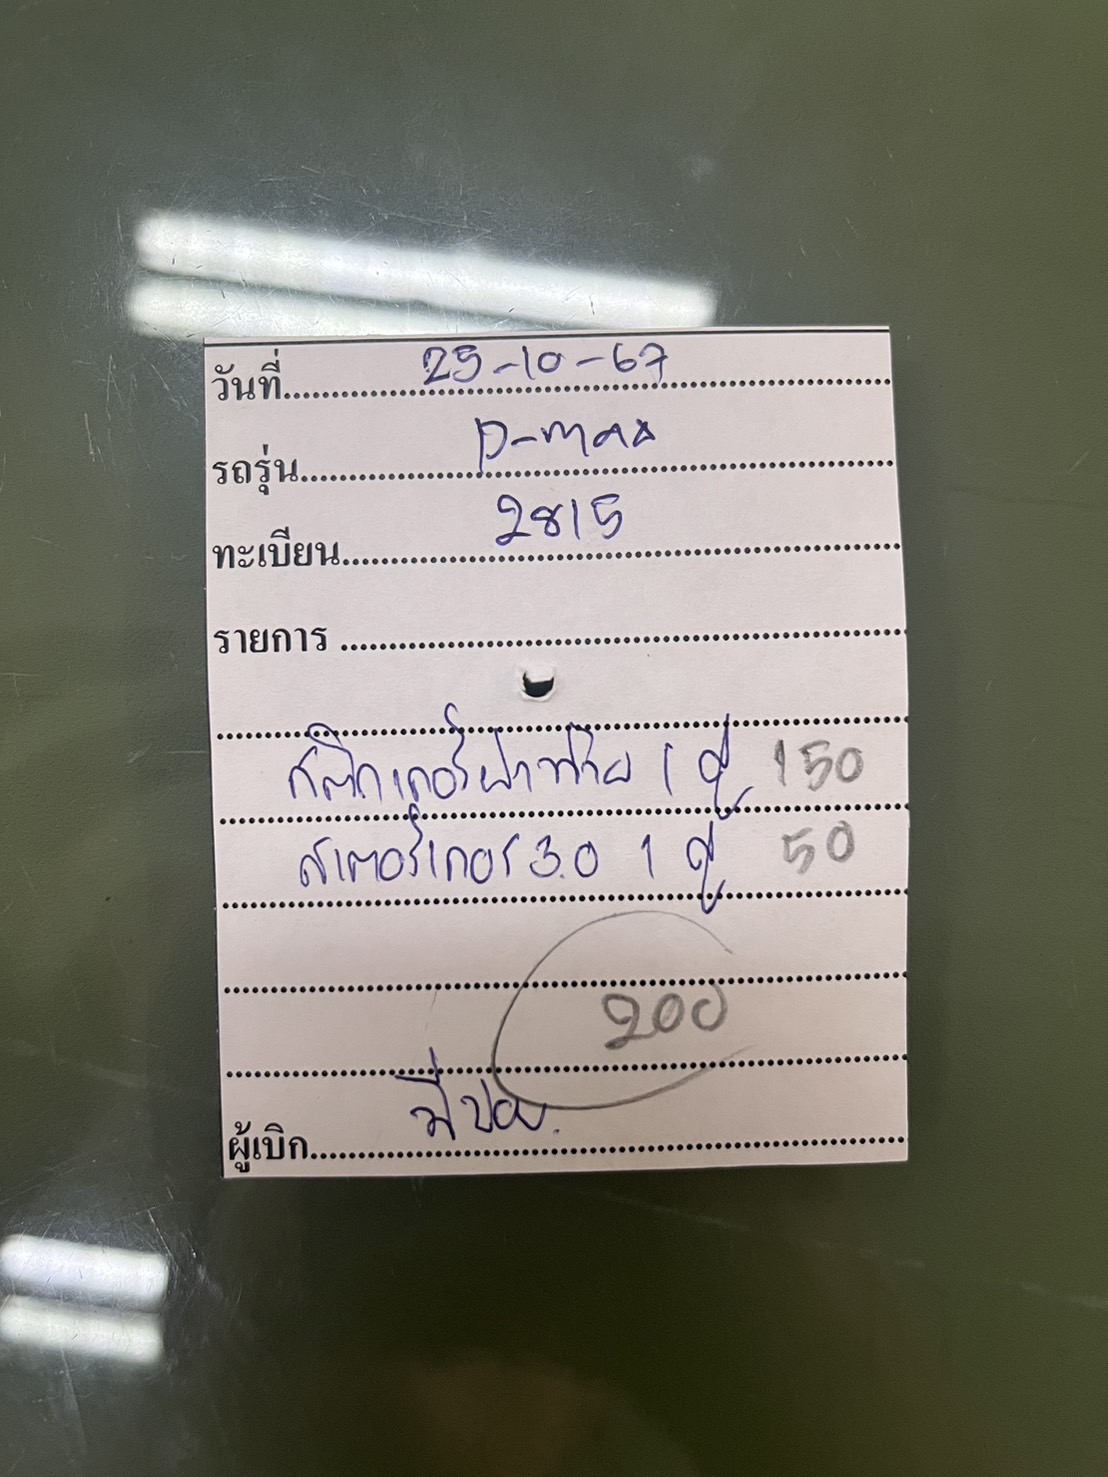 วันที่ 25-10-67
รถรุ่น D-max
ทะเบียน 2815
รายการ
สติกเกอร์ฝาท้าย 1 คู่ 150
สเตอร์เกอร์ 3.0 1 คู่ 50
200
ผู้เบิก พี่ปอย.